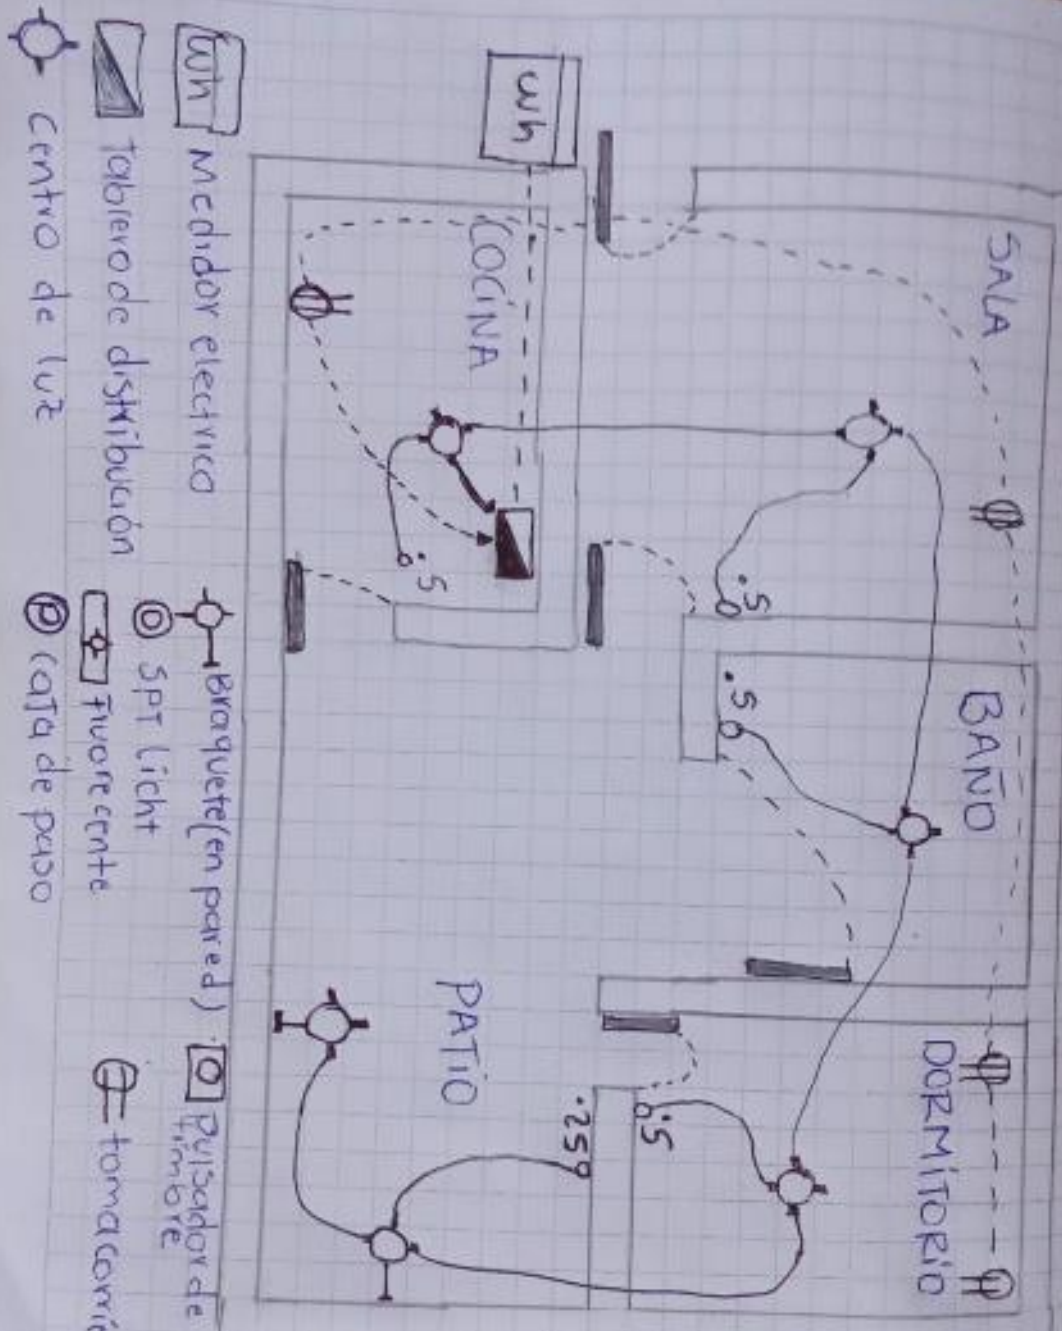 SALA
BAÑO
DORMITORIO
.S
.S
.S
Wh
COCINA
.S
PATIO
.2S
Wh Medidor electrico
Tablero de distribución
Centro de luz
Braquete (en pared)
SPT Licht
Fluorecente
P caja de paso
Pulsador de
timbre